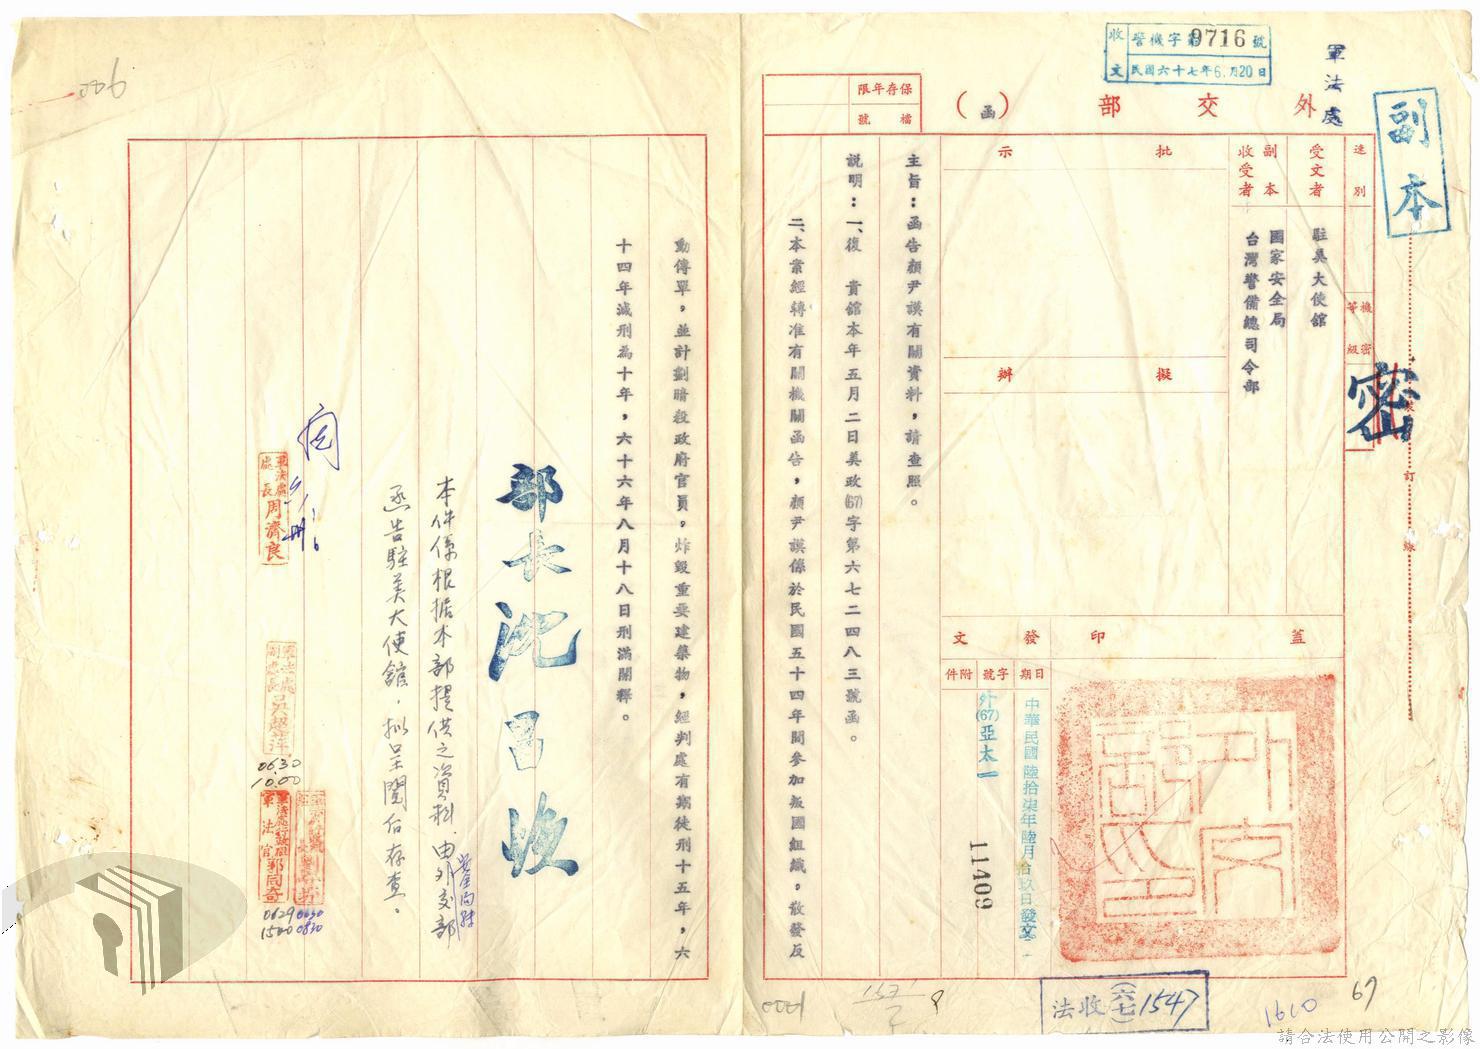 副本
密
軍法處
收文
警機字第9716號
民國六十七年6.月20日
外交部（函）
保存年限
檔號
速別
機密等級
受文者
駐美大使館
副本收受者
國家安全局
台灣警備總司令部
批示
擬辦
蓋印
發文
日期
中華民國陸拾柒年陸月拾玖日發文
字號
外(67)亞太一
11409
附件
裝
訂
線
主旨：函告顏尹謨有關資料，請查照。
說明：一、復　貴館本年五月二日美政(67)字第六七二四八三號函。
二、本案經轉准有關機關函告，顏尹謨係於民國五十四年間參加叛國組織，散發反
動傳單，並計劃暗殺政府官員，炸毀重要建築物，經判處有期徒刑十五年，六
十四年減刑為十年，六十六年八月十八日刑滿開釋。
部長沈昌煥
本件係根據本部提供之資料，由外交部
函告駐美大使館，擬呈閱后存查。
軍法處處長周濟良
0630
10.00
軍法處行政組軍法官郭同奇
0629
1500
0630
0830
法收(六七)1547
1610
67